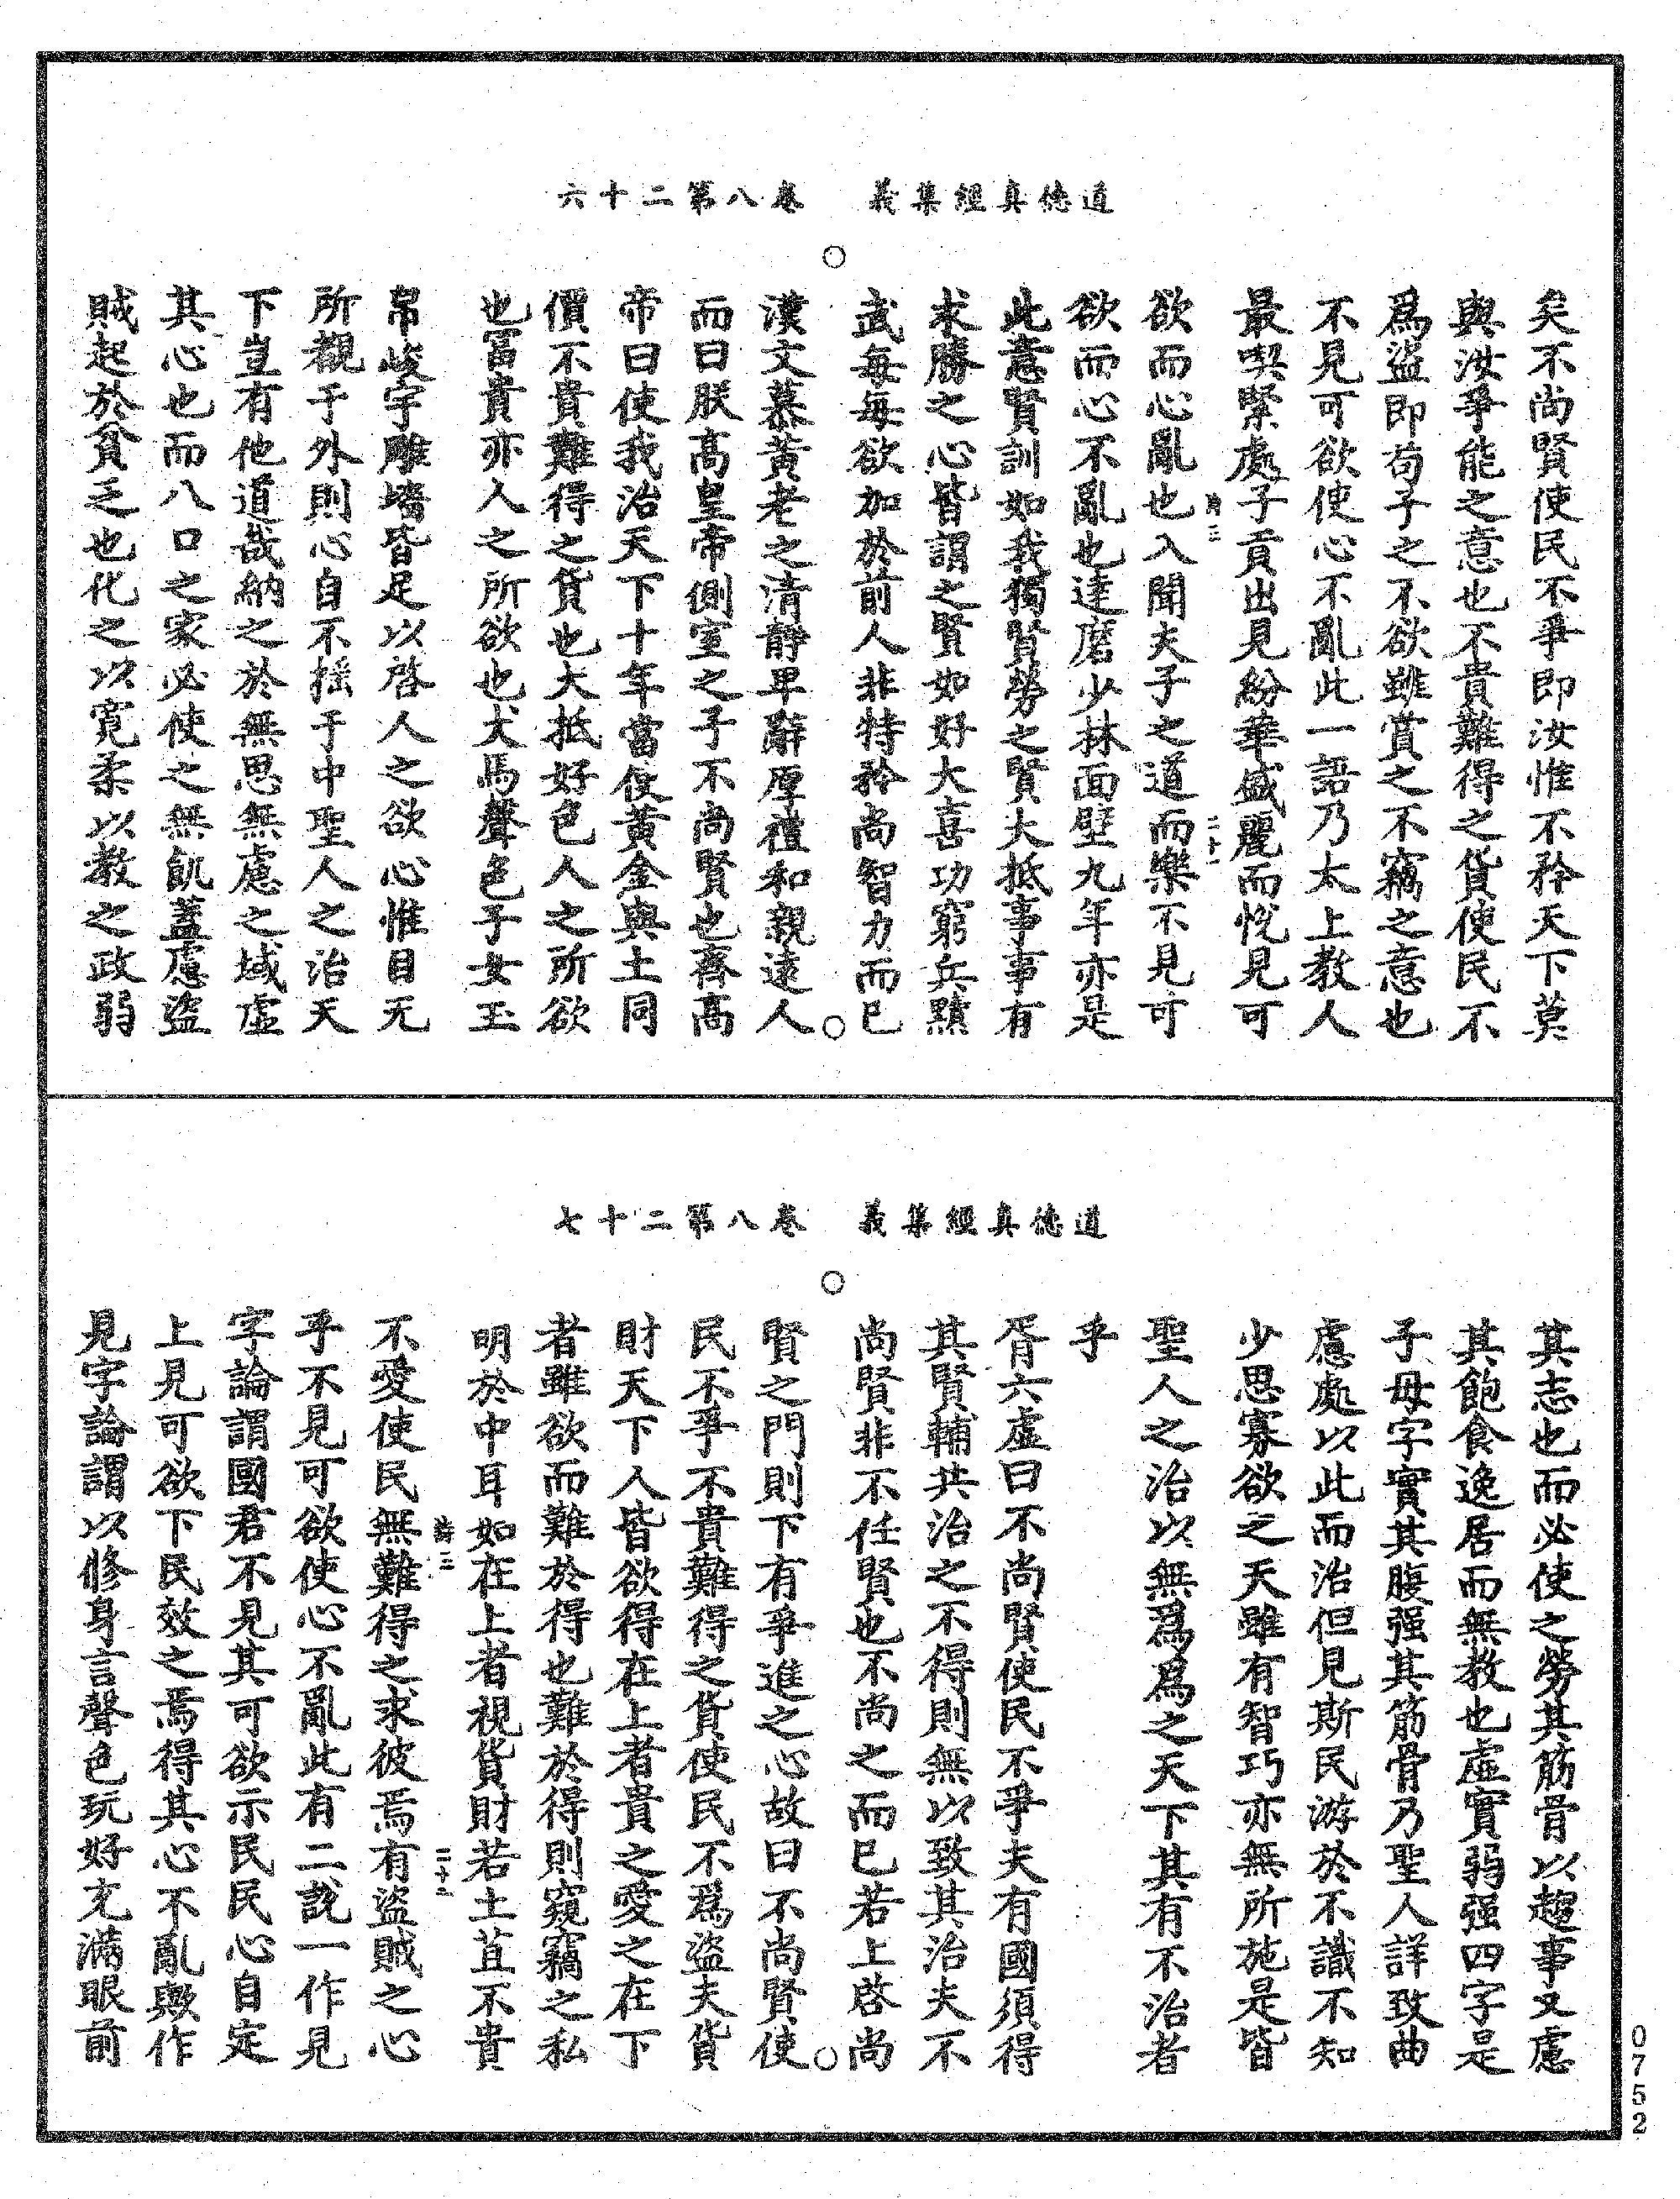 道德真經集義　卷八第二十六
矣不尚賢使民不爭即汝惟不矜天下莫
與汝爭能之意也不貴難得之貨使民不
爲盜即苟子之不欲雖賞之不竊之意也
不見可欲使心不亂此一語乃太上教人
最喫緊處子貢出見紛華盛麗而悅見可
欲而心亂也入聞夫子之道而樂不見可
欲而心不亂也達磨少林面壁九年亦是
此意賢訓如我獨賢勞之賢大抵事事有
求勝之心皆謂之賢如好大喜功窮兵黷
武每每欲加於前人非特矜尚智力而已
漢文慕黃老之清靜卑辭厚禮和親遠人
而曰朕高皇帝側室之子不尚賢也齊高
帝曰使我治天下十年當使黃金與土同
價不貴難得之貨也大抵好色人之所欲
也富貴亦人之所欲也犬馬聲色子女玉
帛峻宇雕墻皆足以啓人之欲心惟目无
所觀于外則心自不搖于中聖人之治天
下豈有他道哉納之於無思無慮之域虛
其心也而八口之家必使之無飢蓋慮盜
賊起於貧乏也化之以寬柔以教之政弱
道德真經集義　卷八第二十七
其志也而必使之勞其筋骨以趨事又慮
其飽食逸居而無教也虛實弱强四字是
子母字實其腹强其筋骨乃聖人詳致曲
慮處以此而治但見斯民游於不識不知
少思寡欲之天雖有智巧亦無所施是皆
聖人之治以無爲爲之天下其有不治者
乎
胥六虛曰不尚賢使民不爭夫有國須得
其賢輔共治之不得則無以致其治夫不
尚賢非不任賢也不尚之而已若上啓尚
賢之門則下有爭進之心故曰不尚賢使
民不爭不貴難得之貨使民不爲盜夫貨
財天下人皆欲得在上者貴之愛之在下
者雖欲而難於得也難於得則窺竊之私
明於中耳如在上者視貨財若土苴不貴
不愛使民無難得之求彼焉有盜賊之心
乎不見可欲使心不亂此有二說一作見
字論謂國君不見其可欲示民民心自定
上見可欲下民效之焉得其心不亂歟作
見字論謂以修身言聲色玩好充滿眼前
0752